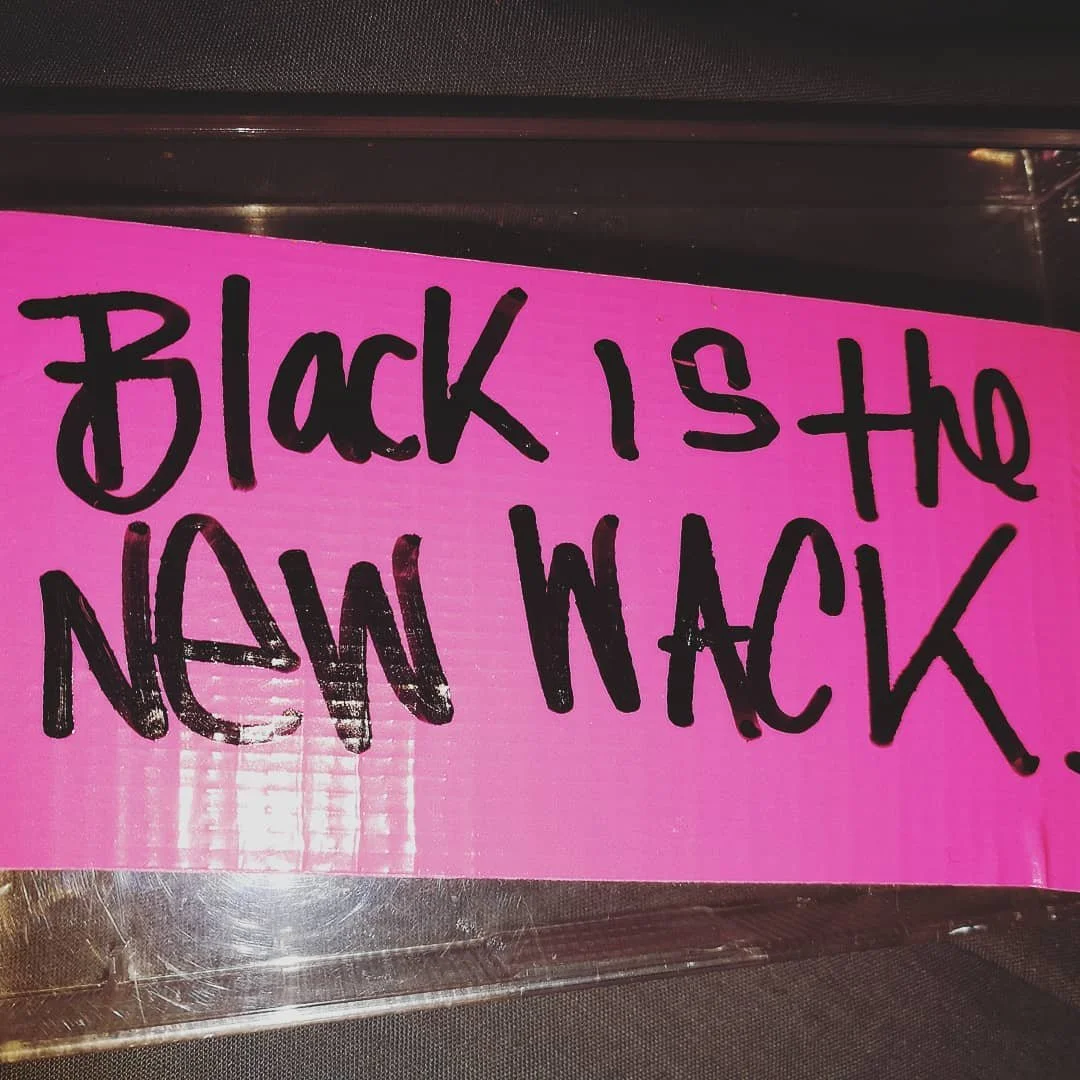 Black is the
New WACK.